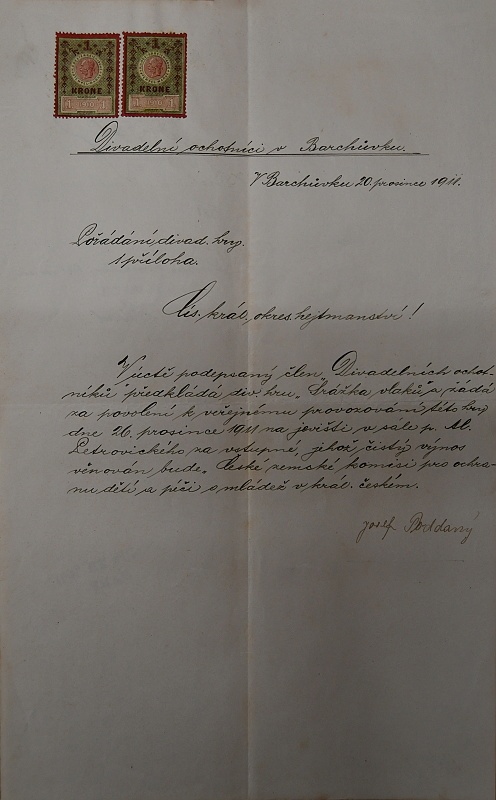 1 1
KRONE KRONE
1 1910 1 1 1910 1
Divadelní ochotníci v Barchůvku.
V Barchůvku 20. prosince 1911.
Pořádání divad. hry.
1 příloha.
Cís. král. okres. hejtmanství!
V úctě podepsaný člen „Divadelních ochot-
níků" předkládá div. hru „Srážka vlaků" a žádá
za povolení k veřejnému provozování této hry
dne 26. prosince 1911 na jevišti v sále p. Al.
Petrovického za vstupné, jehož čistý výnos
věnován bude „České zemské komisi pro ochra-
nu dětí a péči o mládež v král. českém.
Josef Poddaný